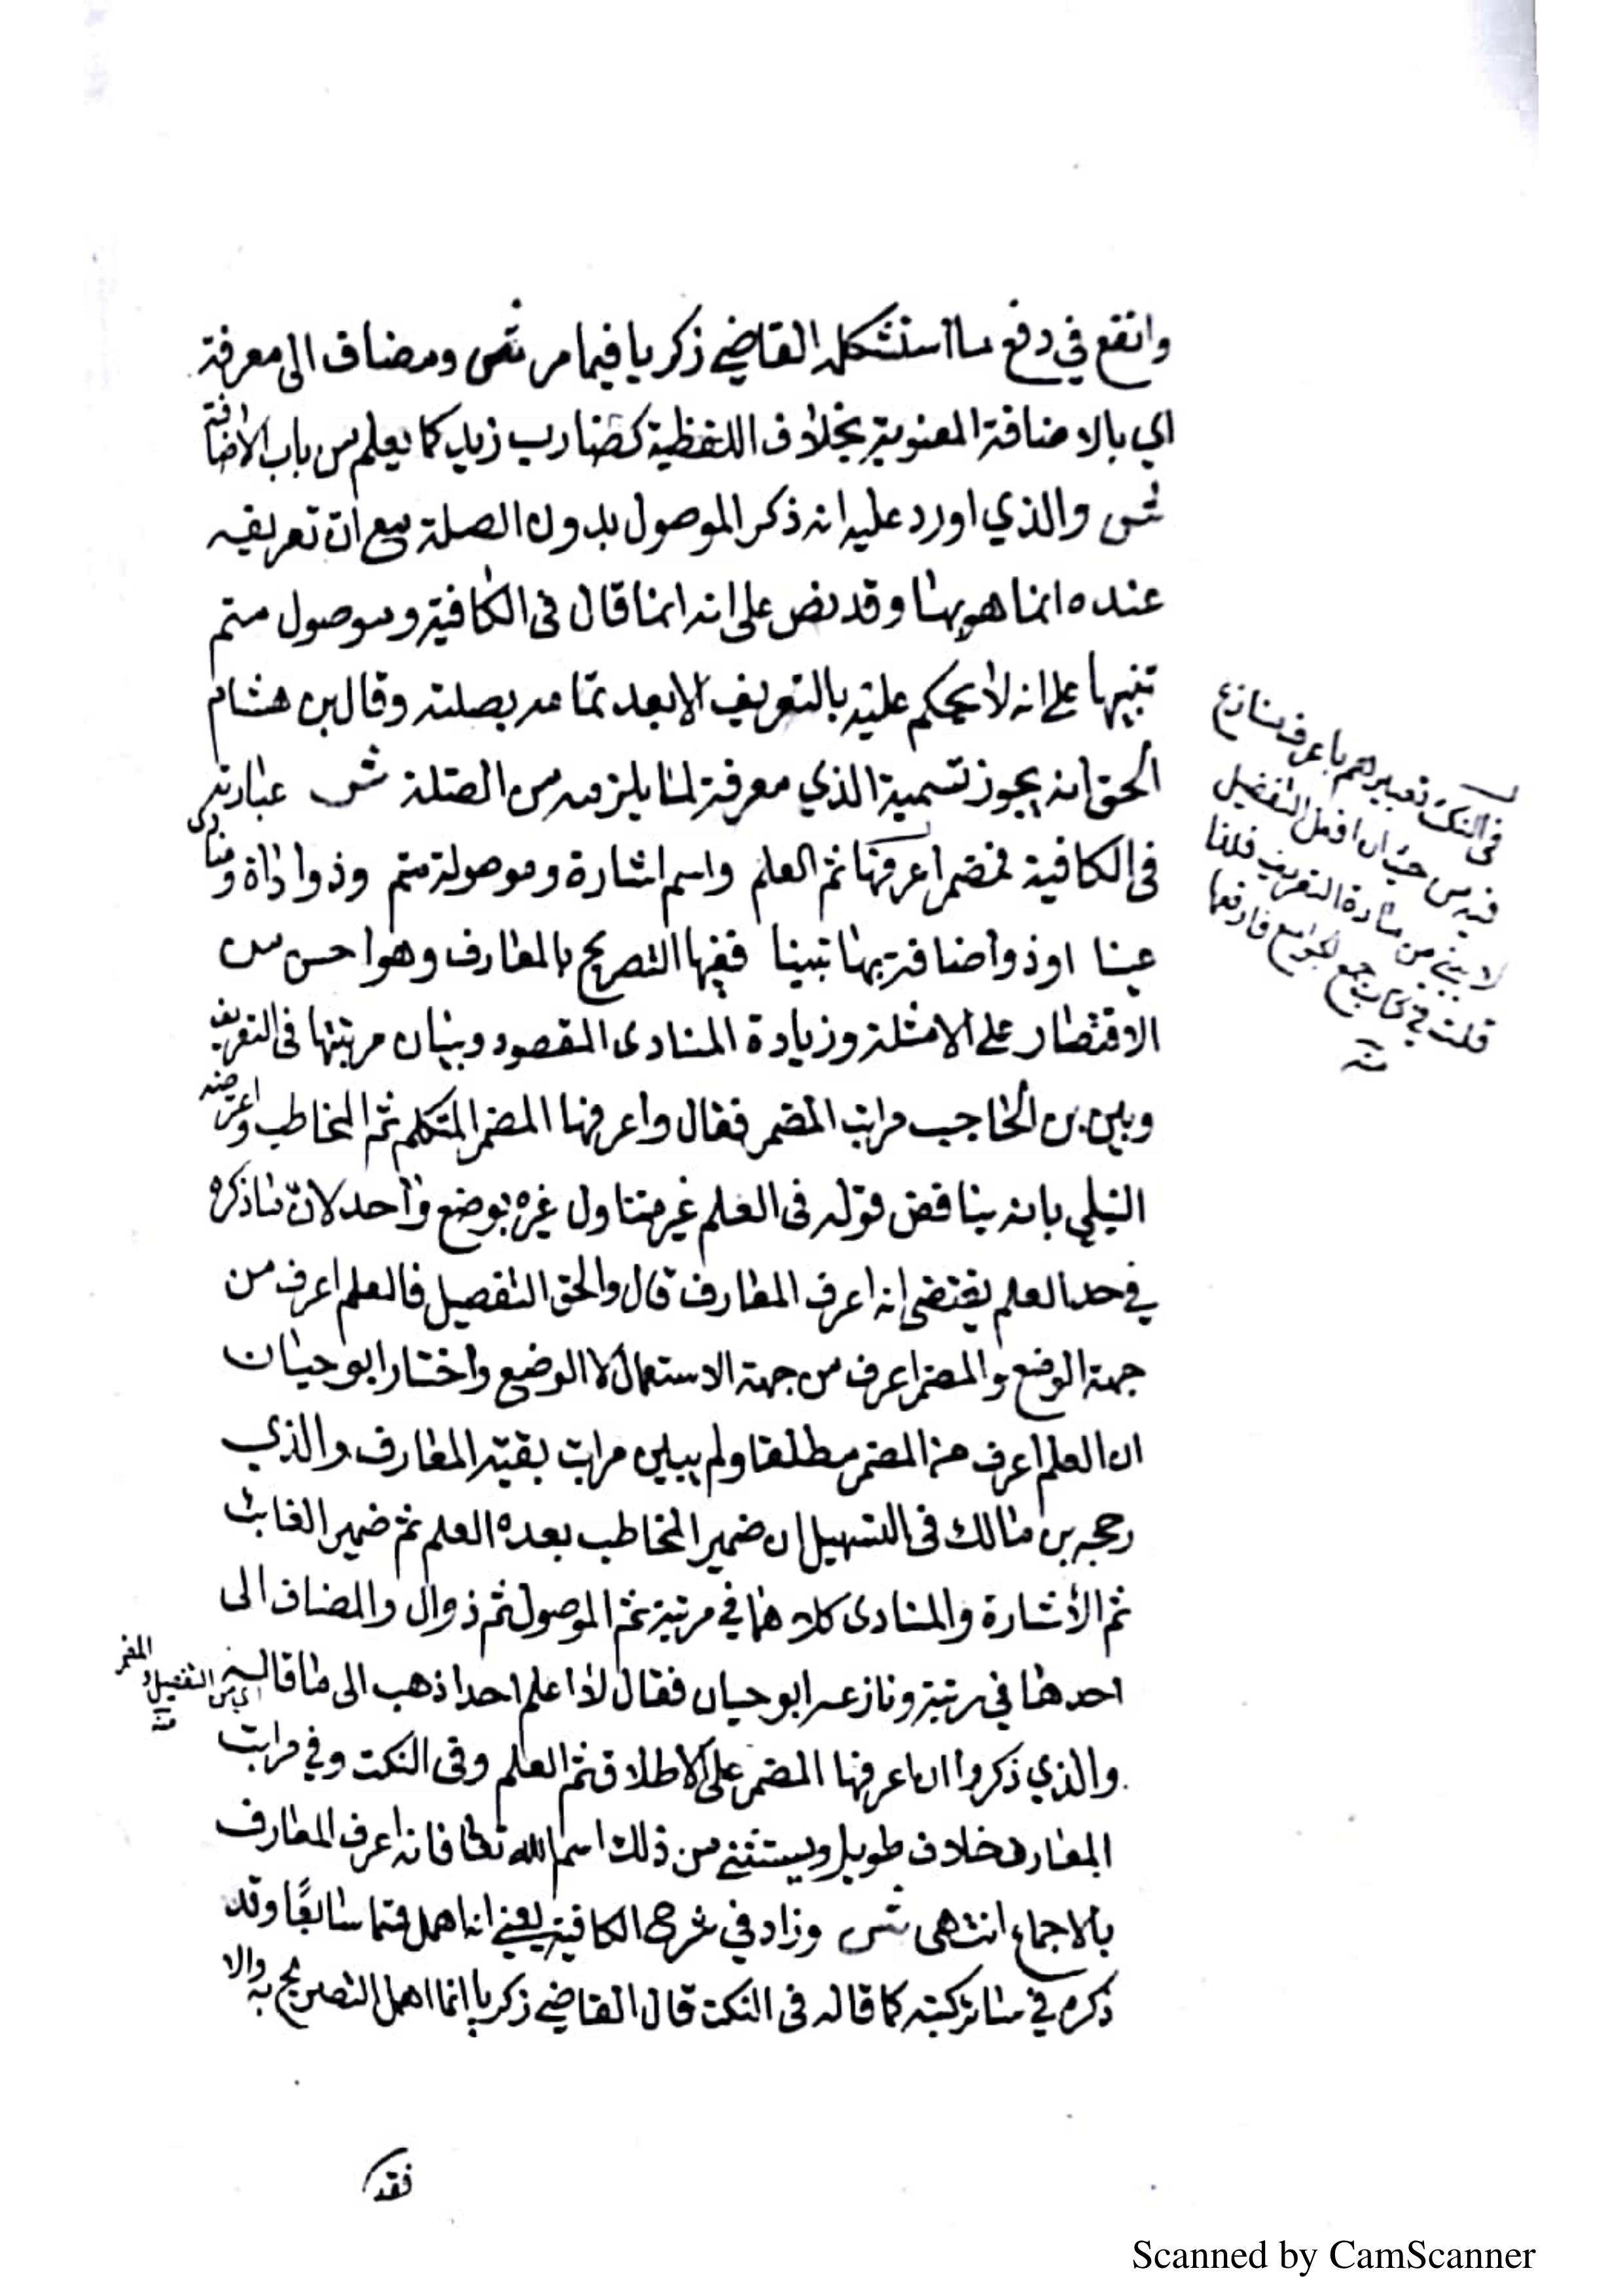 وانفع في دفع ما استشكله القاضي زكريا فيما مر ش ومضاف الى معرفة
اي بالاضافة المعنوية بخلاف اللفظية كضارب زيد كما يعلم من باب الاضافة
ش والذي اورد عليه انه ذكر الموصول بدون الصلة مع ان تعريفه
عنده انما هو بها وقد نص على انه انما قال فى الكافية وموصول متم
تنبيها على انه لا يحكم عليه بالتعريف الا بعد تمامه بصلته وقال بن هشام
الحق انه يجوز تسمية الذي معرفة لما يلزمه من الصلة ش عبارته
فى الكافية فمضمر اعرفها ثم العلم واسم اشارة وموصولة متم وذو اداة ومنادى
عينا اوذو اضافة بها تبينا ففيها التصريح بالمعارف وهو احسن من
الاقتصار على الامثلة وزيادة المنادى المقصود وبيان مرتبتها فى التعريف
وبين بن الحاجب مراتب المضمر فقال واعرفها المضمر المتكلم ثم المخاطب واعترضه
النيلي بانه يناقض قوله فى العلم غير متناول غيره بوضع واحد لانّ ما ذكره
في حد العلم يقتضى انه اعرف المعارف قال والحق التفصيل فالعلم اعرف من
جهة الوضع والمضمر اعرف من جهة الاستعمال لا الوضع واختار ابو حيان
ان العلم اعرف من المضمر مطلقا ولم يبين مراتب بقية المعارف والذي
رجحه بن مالك فى التسهيل ان ضمير المخاطب بعده العلم ثم ضمير الغائب
ثم الأشارة والمنادى كلاهما في مرتبة ثم الموصول ثم ذو ال والمضاف الى
احدها في رتبته ونازعه ابو حيان فقال لا اعلم احدا ذهب الى ما قاله
اي من التفصيل في المضمر
منه
والذي ذكروا ان اعرفها المضمر على الاطلاق ثم العلم وفى النكت وفي مراتب
المعارف خلاف طويل ويستثنى من ذلك اسم الله تعالى فانه اعرف المعارف
بالاجماع انتهى ش وزاد في شرح الكافية يعني انه اهمل قسما سابعًا وقد
ذكره في سائر كتبه كما قاله فى النكت قال القاضي زكريا انما اهمل التصريح به والا
فقد
فى النكت تعبيرهم باعرف منازع
فيه من حيث ان افعل التفضيل
لا يبنى من مادة التعريف فلذا
قلت في كتاب جمع الجوامع فارفعها
منه
Scanned by CamScanner